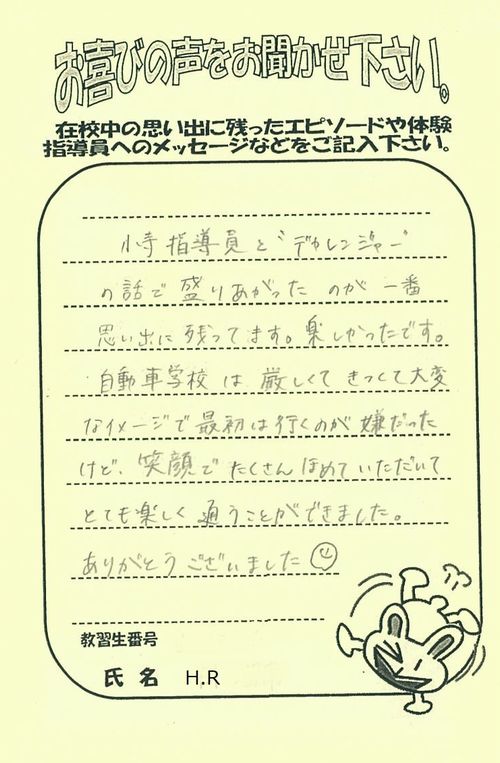 お喜びの声をお聞かせ下さい。
在校中の思い出に残ったエピソードや体験
指導員へのメッセージなどをご記入下さい。
小寺指導員と"デカレンジャー"
の話で盛りあがったのが一番
思い出に残ってます。楽しかったです。
自動車学校は厳しくてきつくて大変
なイメージで最初は行くのが嫌だった
けど、笑顔でたくさんほめていただいて
とても楽しく通うことができました。
ありがとうございました
教習生番号
氏名 H.R